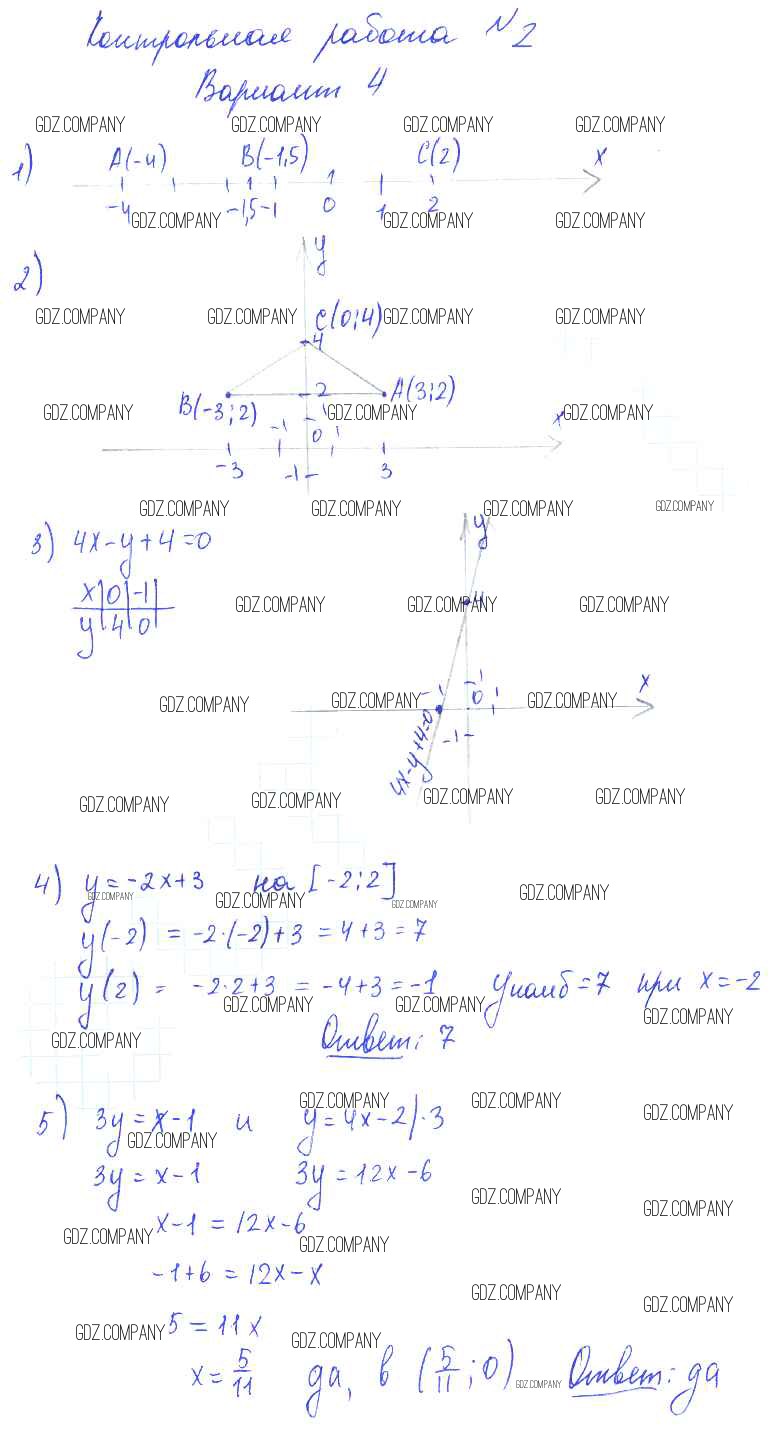 Контрольная работа №2
Вариант 4
GDZ.COMPANY GDZ.COMPANY GDZ.COMPANY GDZ.COMPANY
1) A(-4) B(-1,5) C(2) x
-4 -1,5 -1 0 1 2
GDZ.COMPANY GDZ.COMPANY GDZ.COMPANY
y
2)
GDZ.COMPANY GDZ.COMPANY C(0;4) GDZ.COMPANY GDZ.COMPANY
4
B(-3;2) 2 A(3;2)
GDZ.COMPANY GDZ.COMPANY x GDZ.COMPANY
-1 1 0 1
-3 -1 3
GDZ.COMPANY GDZ.COMPANY GDZ.COMPANY GDZ.COMPANY
3) 4x-y+4=0 y
x 0 -1
y 4 0
GDZ.COMPANY GDZ.COMPANY 4 GDZ.COMPANY
GDZ.COMPANY GDZ.COMPANY GDZ.COMPANY
-1 1 0 1 x
-1
4x-y+4=0
GDZ.COMPANY GDZ.COMPANY GDZ.COMPANY GDZ.COMPANY
4) y=-2x+3 на [-2;2]
GDZ.COMPANY GDZ.COMPANY GDZ.COMPANY GDZ.COMPANY
y(-2) = -2·(-2)+3 = 4+3 = 7
y(2) = -2·2+3 = -4+3 = -1 yнаиб=7 при x=-2
GDZ.COMPANY GDZ.COMPANY GDZ.COMPANY
GDZ.COMPANY Ответ: 7
GDZ.COMPANY GDZ.COMPANY GDZ.COMPANY
5) 3y=x-1 и y=4x-2|·3
GDZ.COMPANY
3y=x-1 3y=12x-6
GDZ.COMPANY GDZ.COMPANY
x-1=12x-6
GDZ.COMPANY GDZ.COMPANY
-1+6=12x-x
GDZ.COMPANY GDZ.COMPANY
5=11x
GDZ.COMPANY GDZ.COMPANY
x=5/11 да, в (5/11;0) GDZ.COMPANY Ответ: да